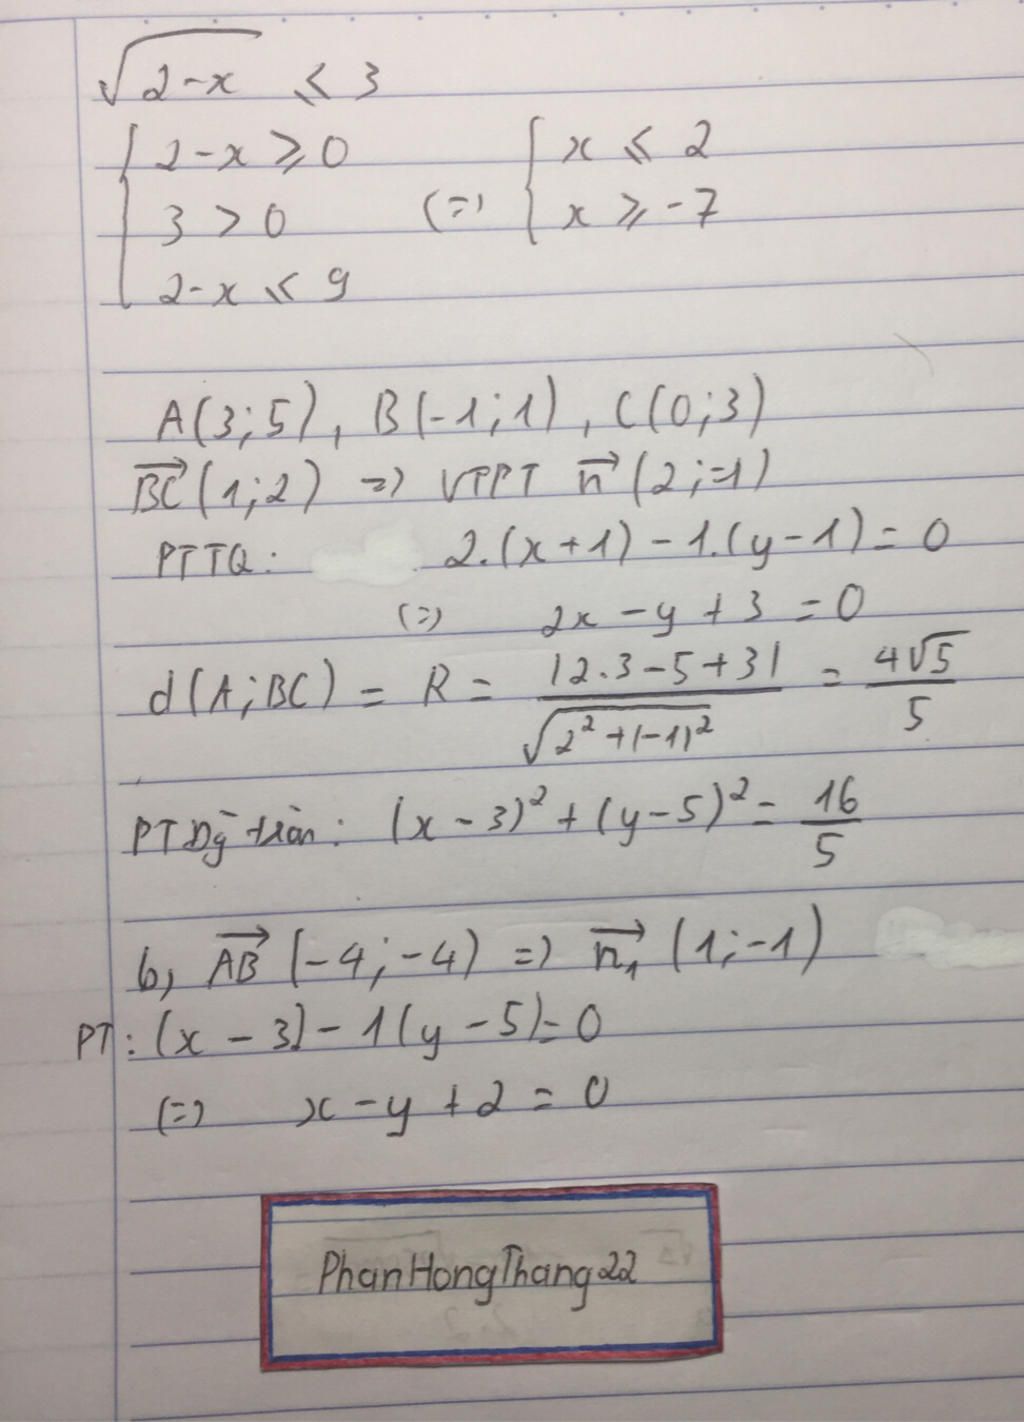 √(2-x) ⩽ 3
{ 2-x ⩾ 0
3 > 0 (=) { x ⩽ 2
2-x ⩽ 9 x ⩾ -7
A(3;5), B(-1;1), C(0;3)
BC→(1;2) => VTPT n→(2;-1)
PTTQ: 2.(x+1)-1.(y-1)=0
(=) 2x-y+3=0
d(A;BC) = R = |2.3-5+3| / √(2²+(-1)²) = 4√5 / 5
PT Đg tròn: (x-3)²+(y-5)²= 16/5
b, AB→(-4;-4) => n₁→(1;-1)
PT: (x-3)-1(y-5)=0
(=) x-y+2=0
PhanHongThang22